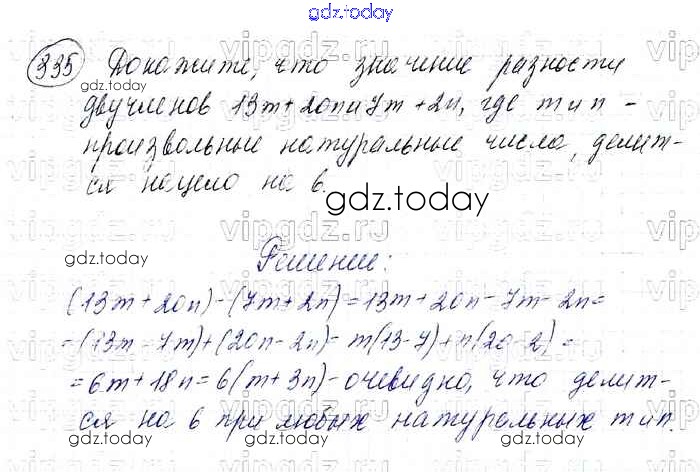 gdz.today
335 Докажите, что значение разности
двучленов 13m+20n и 7m+2n, где m и n -
произвольные натуральные числа, делит-
ся нацело на 6.
Решение:
(13m+20n)-(7m+2n)=13m+20n-7m-2n=
=(13m-7m)+(20n-2n)=m(13-7)+n(20-2)=
=6m+18n=6(m+3n)-очевидно, что делит-
ся на 6 при любых натуральных m и n.